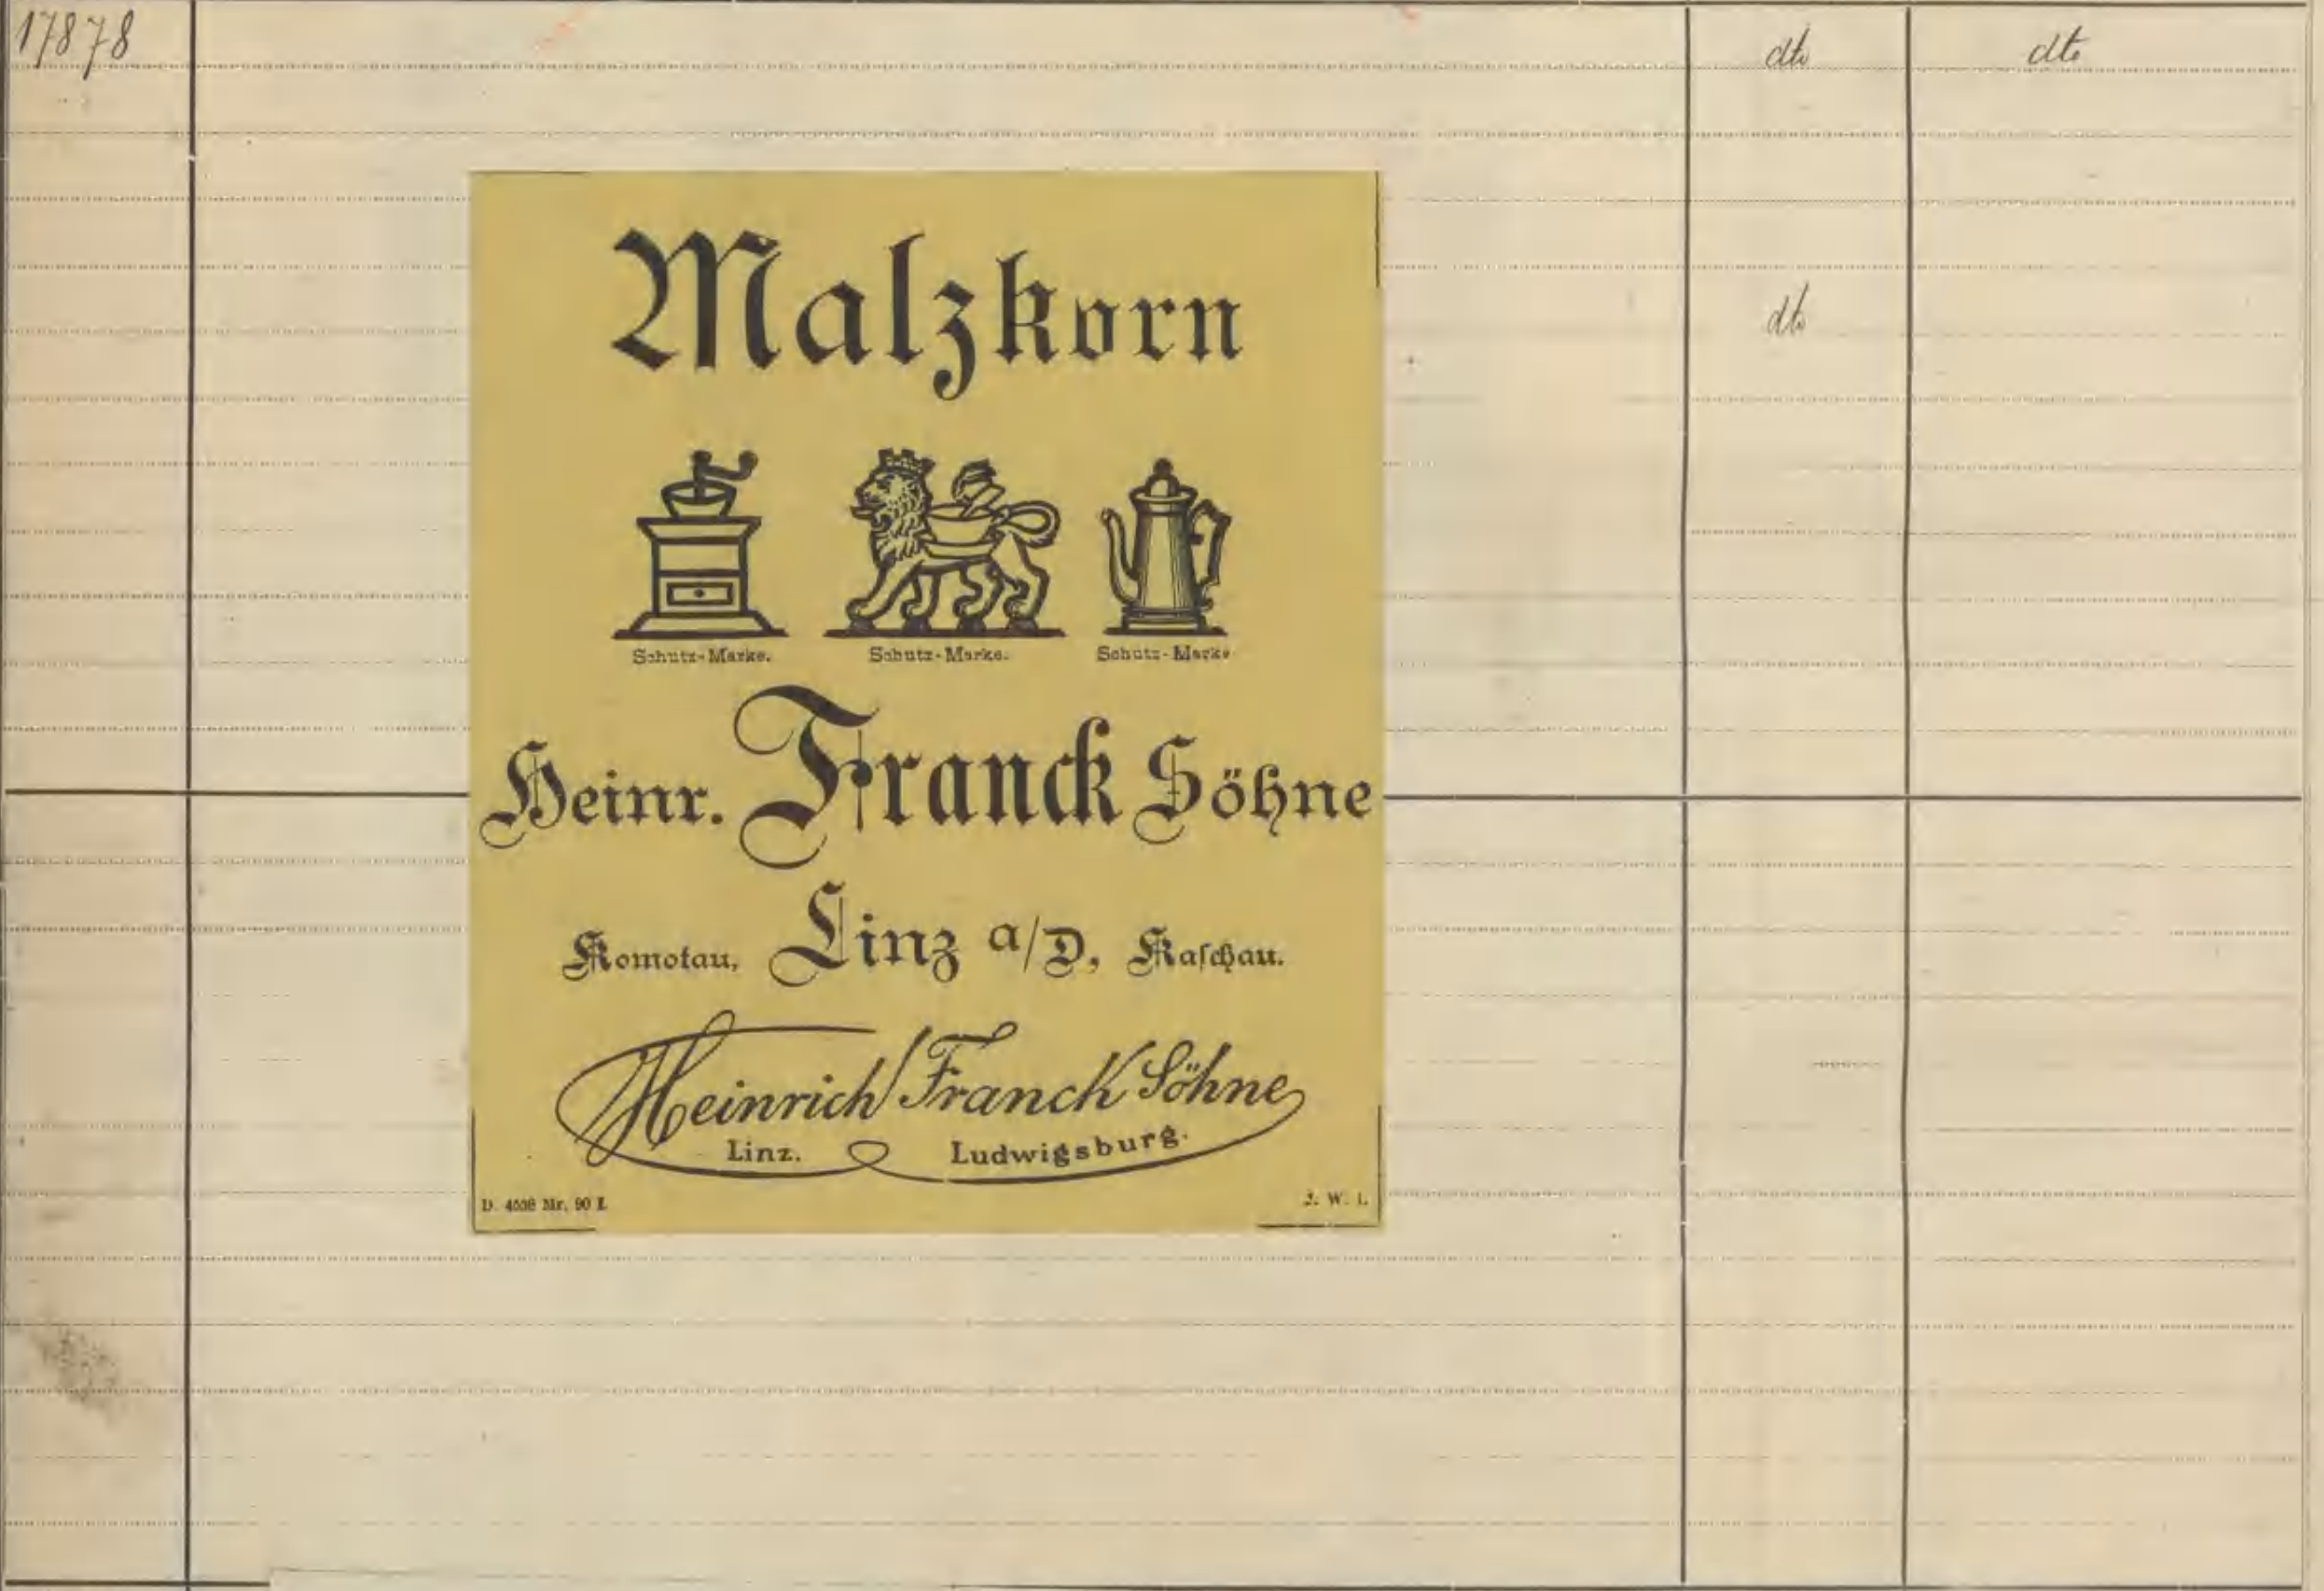 17878 dto dto
dto
Malzkorn
Schutz-Marke. Schutz-Marke. Schutz-Marke
Heinr. Franck Söhne
Komotau, Linz a/D, Kaschau.
Heinrich Franck Söhne
Linz. Ludwigsburg.
Nr. 90 W.